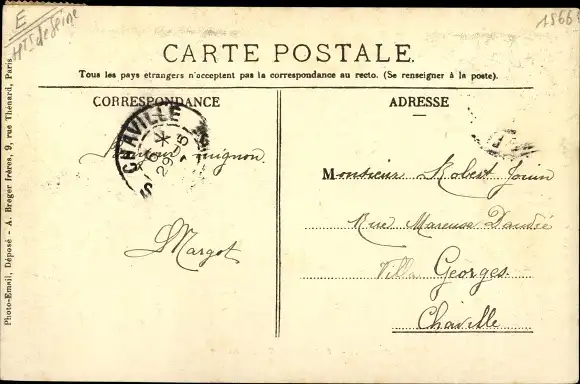 E
Hts de Seine
CARTE POSTALE.
Tous les pays étrangers n'acceptent pas la correspondance au recto. (Se renseigner à la poste).
CORRESPONDANCE
ADRESSE
CHAVILLE
29
Margot
Monsieur Robert Jouin
Rue
Villa Georges.
Chaville
Photo-Email, Déposé - A. Breger frères, 9, rue Thénard, Paris